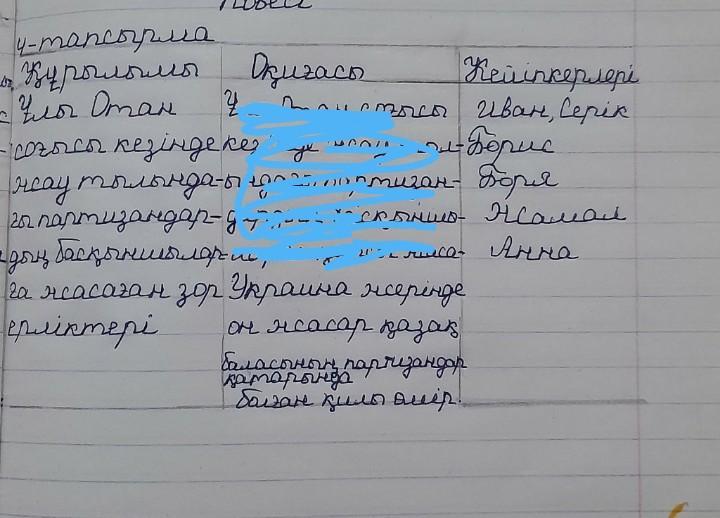 Повесі
4-тапсырма
Құрылымы Оқиғасы Кейіпкерлері
Ұлы Отан соғысы Иван, Серік
соғысы кезінде Борис
жау тылында- Боря
ғы партизандар- Жамал
дың басқыншылар- Анна
ға жасаған зор Украина жерінде
ерліктері он жасар қазақ
баласының партизандар
қатарында
болған қилы өмір.